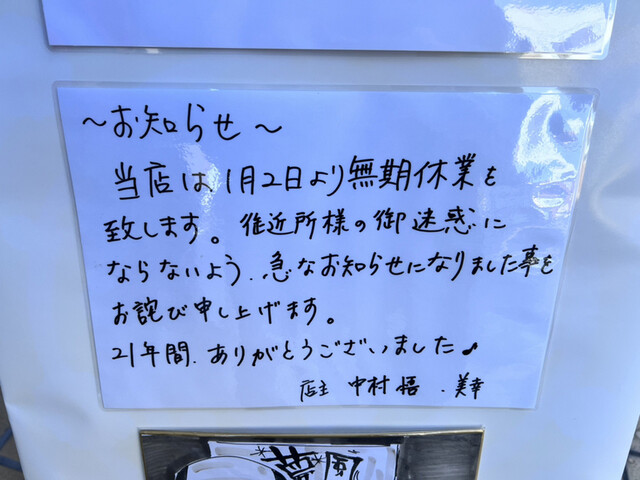 ～お知らせ～
当店は、1月2日より無期休業を
致します。御近所様の御迷惑に
ならないよう、急なお知らせになりました事を
お詫び申し上げます。
21年間、ありがとうございました♪
店主 中村 悟 . 美幸